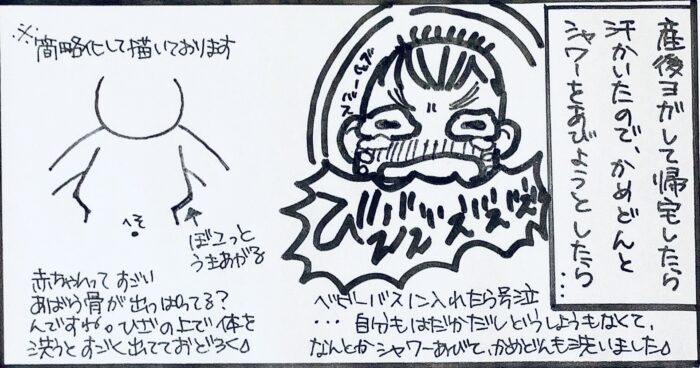 産後ヨガして帰宅したら
汗かいたので、かめどんと
シャワーをあびようとしたら
…
びぇぇズズズ
ベビーバスに入れたら号泣
…自分もはだかだしどうしようもなくて、
なんとかシャワーあびて、かめどんも洗いました。
※簡略化して描いております
へそ
ぼコっと
うきあがる
赤ちゃんって すごい
あばら骨が出っぱってる?
んですね。ひざの上で体を
洗うとすごく出てておどろく。